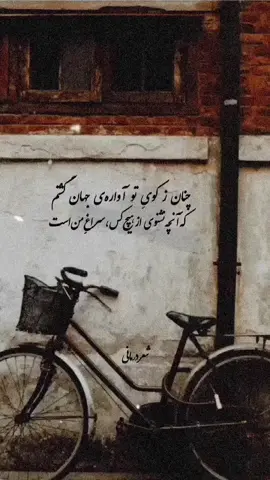 چنان ز کویِ تو آواره‌ی جهان گشتم
که آنچه نشنوی از هیچ کس، سراغِ من است
شعردرمانی